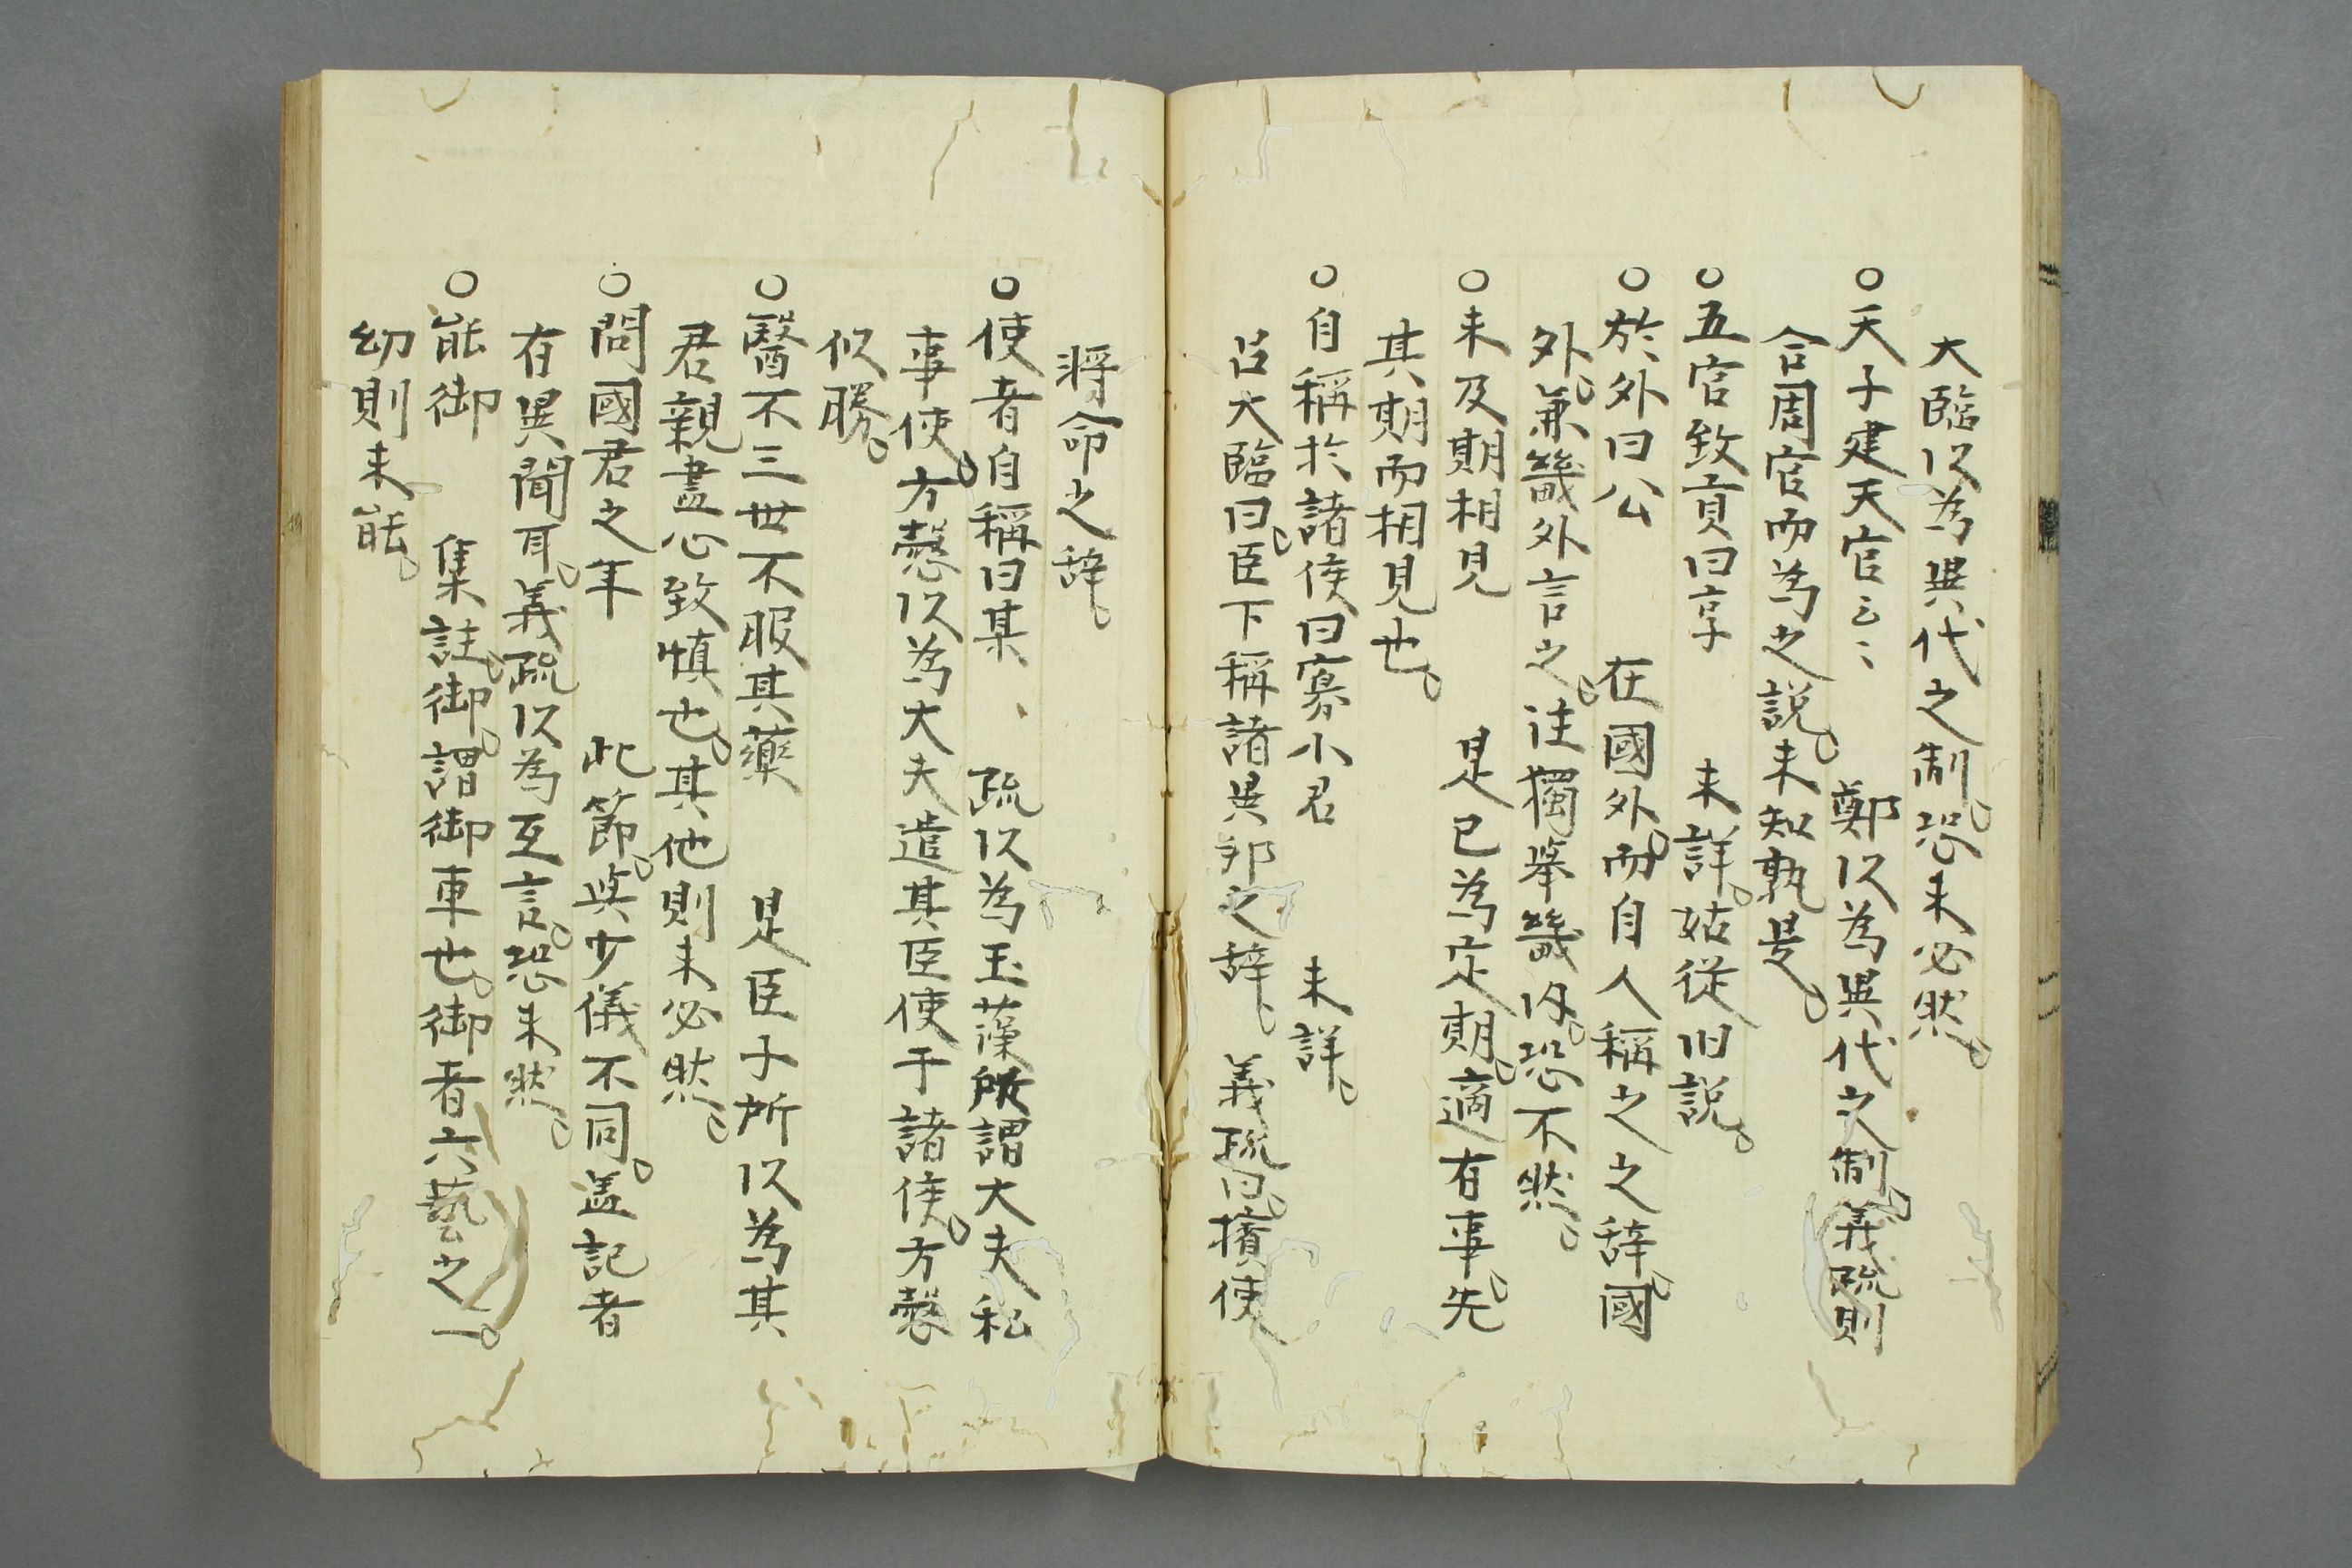 大臨以為異代之制。恐未必然。
○天子建天官云〻　鄭以為異代之制。義疏則
合周官而為之説。未知孰是。
○五官致貢曰享　未詳。姑從旧説。
○於外曰公　在國外。而自人稱之之辞。國
外。兼畿外言之。注獨舉畿內。恐不然。
○未及期相見　是已為定期。適有事。先
其期而相見也。
○自稱於諸侯曰寡小君　未詳。
呂大臨曰。臣下稱諸異邦之辞。義疏曰。擯使
將命之辞。
○使者自稱曰某　疏以為玉藻所謂大夫私
事使。方慤以為大夫遣其臣使于諸侯。方慤
似勝。
○醫不三世不服其藥　是臣子所以為其
君親盡心致慎也。其他則未必然。
○問國君之年　此節。與少儀不同。盖記者
有異聞耳。義疏以為互言。恐未然。
○能御　集註。御。謂御車也。御者六藝之一。
幼則未能。